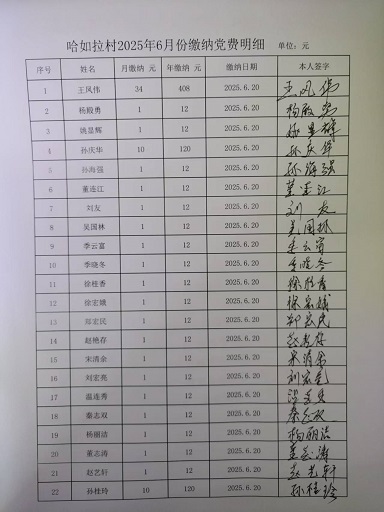 哈如拉村2025年6月份缴纳党费明细 单位：元
序号 姓名 月缴纳 元 年缴纳 元 缴纳日期 本人签字
1 王凤伟 34 408 2025.6.20 王凤伟
2 杨殿勇 1 12 2025.6.20 杨殿勇
3 姚显辉 1 12 2025.6.20
4 孙庆华 10 120 2025.6.20 孙庆华
5 孙海强 1 12 2025.6.20 孙海强
6 董连江 1 12 2025.6.20 董连江
7 刘友 1 12 2025.6.20 刘友
8 吴国林 1 12 2025.6.20 吴国林
9 李云富 1 12 2025.6.20 李云富
10 季晓冬 1 12 2025.6.20 季晓冬
11 徐桂香 1 12 2025.6.20 徐桂香
12 徐宏娥 1 12 2025.6.20 徐宏娥
13 郑宏民 1 12 2025.6.20 郑宏民
14 赵艳存 1 12 2025.6.20 赵艳存
15 宋清余 1 12 2025.6.20 宋清余
16 刘宏亮 1 12 2025.6.20 刘宏亮
17 温连秀 1 12 2025.6.20
18 秦志双 1 12 2025.6.20 秦志双
19 杨丽洁 1 12 2025.6.20 杨丽洁
20 董志涛 1 12 2025.6.20 董志涛
21 赵艺轩 1 12 2025.6.20 赵艺轩
22 孙桂玲 10 120 2025.6.20 孙桂玲